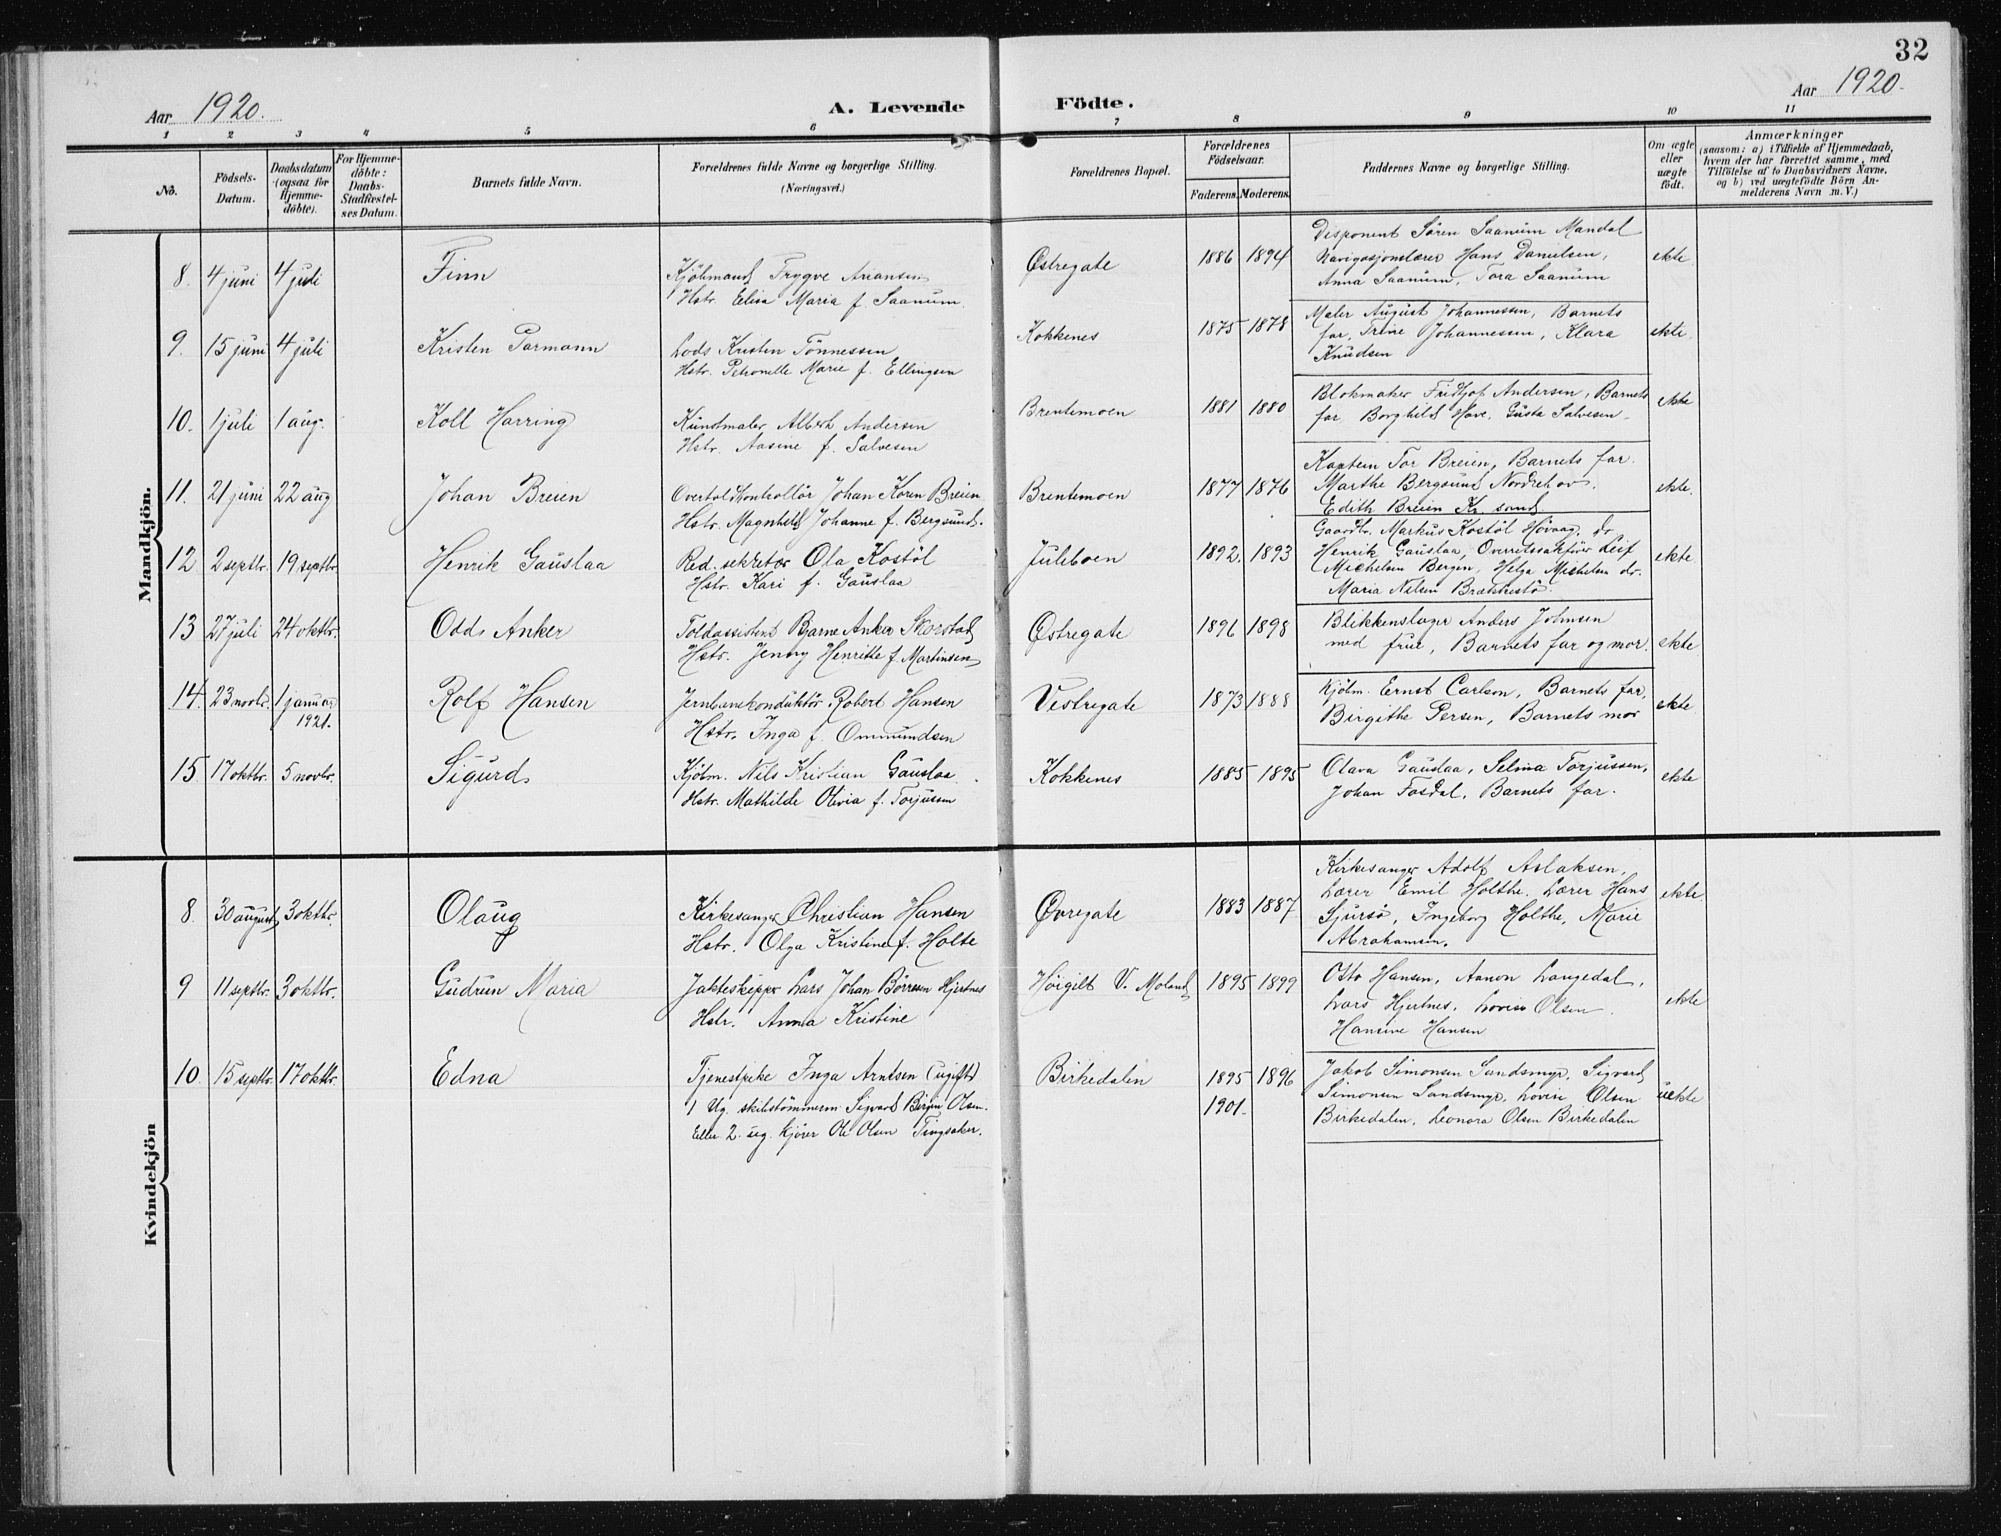 32
Aar 1920.
A. Levende Födte.
Aar 1920.
1 2 3 4 5 6 7 8 9 10 11
No.
Födsels-Datum.
Daabsdatum (ogsaa for Hjemme-döbte).
For Hjemme-döbte: Daabs-Stadfæstel-ses Datum.
Barnets fulde Navn.
Forældrenes fulde Navne og borgerlige Stilling.
(Næringsvei.)
Forældrenes Bopæl.
Forældrenes Födselsaar.
Faderens. Moderens.
Faddernes Navne og borgerlige Stilling.
Om ægte eller uægte födt.
Anmærkninger
(saasom: a) i Tilfælde af Hjemmedaab,
hvem der har forrettet samme, med
Tilföielse af to Daabsvidners Navne,
og b) ved uægtefödte Börn An-
melderens Navn m. V.)
Mandkjön.
8. 4 juni 4 juli Finn
Kjöbmand Trygve Arentsen
Hstr. Elisa Maria f. Saanum.
Østregate 1886 1894
Disponent Sören Saanum Mandal
Navigasjonslærer Hans Danielsen,
Anna Saanum, Tora Saanum
ekte.
9. 15 juni 4 juli Kristen Parmann
Lods Kristen Tönnessen
Hstr. Petronelle Marie f. Ellingsen
Kokkenes 1875 1878
Maler August Johannessen, Barnets
far, Trine Johannessen, Klara
Knudsen
ekte.
10. 1 juli 1 aug. Koll Harring
Kunstmaler Albert Andersen
Hstr. Aasine f. Salvesen
Brentemoen 1881 1880
Blokmaker Fridtjof Andersen, Barnets
far Borghild Hove, Gusta Salvesen.
ekte
11. 21 juni 22 aug Johan Breien
Overtoldkontrollör Johan Koren Breien
Hstr. Magnhild Johanne f. Bergsund.
Brentemoen 1877 1876
Kaptein Tor Breien, Barnets far.
Marthe Bergsund Nordrehov.
Edith Breien Kr. sand
ekte.
12. 2 septbr. 19 septbr. Henrik Gauslaa
Red. sekretær Ola Kostöl
Hstr. Kari f. Gauslaa
Juleboen 1892. 1893
Gaardbr. Markus Kostöl Hövaag, dr
Henrik Gauslaa, Overretssakförer Leif
Michelsen Bergen, Helga Michelsen do.
Maria Nilsen Brækkestö.
ekte
13 27 juli 24 oktbr. Odd Anker
Toldassistent Bjarne Anker Skorstad
Hstr. Jenny Henritte f. Martinsen
Østregate 1896 1898
Blikkenslager Anders Johnsen
med frue, Barnets far og mor.
ekte.
14. 23 novbr. 1 januar 1921. Rolf Hansen
Jernbanekonduktör Robert Hansen
Hstr. Inga f. Ommundsen
Vestregate 1873 1888
Kjöbm. Ernst Carlson, Barnets far,
Birgithe Persen, Barnets mor
ekte.
15. 17 oktbr. 5 novbr. Sigurd
Kjöbm. Nils Kristian Gauslaa
Hstr. Mathilde Olivia f. Torjussen
Kokkenes 1885 1895
Olava Gauslaa, Selma Torjussen,
Johan Fosdal, Barnets far.
ekte
Kvindekjön
8. 30 august 3 oktbr. Olaug
Kirkesanger Christian Hansen
Hstr. Olga Kristine f. Holte
Øvregate 1883 1887
Kirkesanger Adolf Aslaksen,
Lærer Emil Holthe. Lærer Hans
Sjursö, Ingeborg Holthe, Marie
Abrahamsen.
ekte
9 11 septbr. 3 oktbr. Gudrun Maria
Jakteskipper Lars Johan Börresen Hjertnes
Hstr. Anna Kristine
Höigilt V. Moland 1895 1899
Otto Hansen, Aanon Langedal,
Lars Hjertnes, Lovise Olsen.
Hansine Hansen
ekte
10. 15 septbr. 17 oktbr. Edna
Tjenestpike Inga Arntsen (ugift)
1 Ug. skibstömmerm Sigvard Birger Olsen.
Eller 2. ug. kjörer Ole Olsen Tingsaker.
Birkedalen 1895 1896
1901.
Jakob Simonsen Sandsmyr, Sigvard
Simonsen Sandsmyr, Lovise Olsen
Birkedalen, Leonora Olsen Birkedalen
uekte